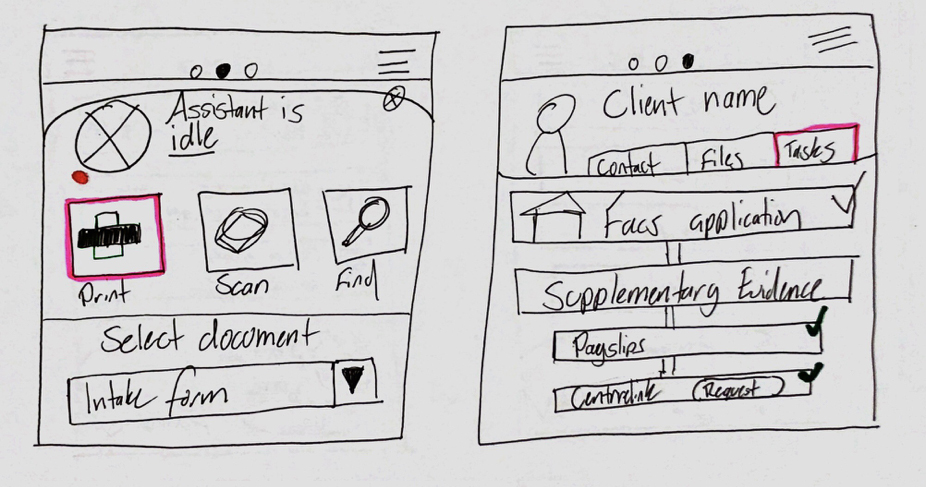 Assistant is
idle
Print
Scan
Find
Select document
Intake form
Client name
Contact
Files
Tasks
Facs application
Supplementary Evidence
Payslips
Centrelink (Request)